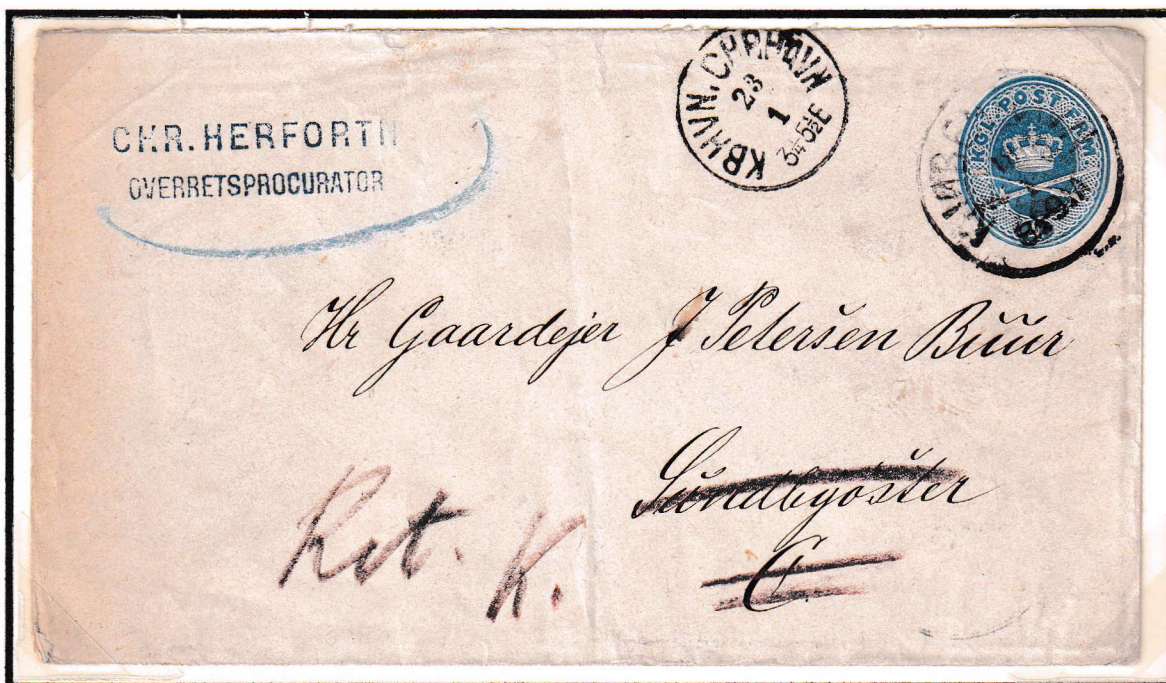 CHR. HERFORTH
OVERRETSPROCURATOR
KBHVN. CHRHAVN
23
1
3-5½E
KGL POST FRM
Hr Gaardejer J Petersen Buur
Sundbyöster
C
Ret. K.